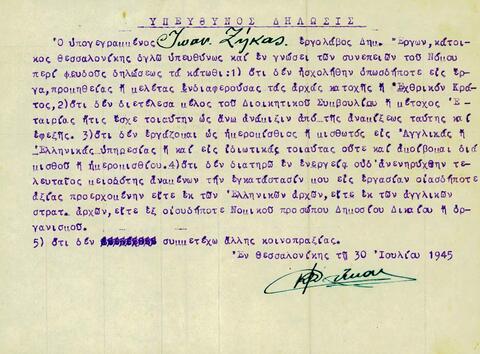 ΥΠΕΥΘΥΝΟΣ ΔΗΛΩΣΙΣ
Ὁ ὑπογεγραμμένος Ἰωαν. Ζήκας. ἐργολάβος Δημ. Ἔργων, κάτοι-
κος Θεσσαλονίκης δηλῶ ὑπευθύνως καί ἐν γνώσει τῶν συνεπειῶν τοῦ Νόμου
περί ψευδοῦς δηλώσεως τά κάτωθι:1) ὅτι δέν ἠσχολήθην ὁπωσδήποτε εἰς ἔρ-
γα,προμηθείας ἤ μελέτας ἐνδιαφερούσας τάς ἀρχάς κατοχῆς ἤ Ἐχθρικόν Κρά-
τος,2)ὅτι δέν διετέλεσα μέλος τοῦ Διοικητικοῦ Συμβουλίου ἤ μέτοχος Ἑ-
ταιρίας ἥτις ἔσχε τοιαύτην ὡς ἄνω ἀνάμιξιν ἀπό τῆς ἀναμίξεως ταύτης καί
ἐφεξῆς. 3)ὅτι δέν ἐργάζομαι ὡς ἡμερομίσθιος ἤ μισθωτός εἰς Ἀγγλικάς ἤ
Ἑλληνικάς ὑπηρεσίας ἤ καί εἰς ἰδιωτικάς τοιαύτας οὔτε καί ἀμοίβομαι διά
μισθοῦ ἤ ἡμερομισθίου.4)ὅτι δέν διατηρῶ ἐν ἐνεργείᾳ οὐδ' ἀνενηρύχθην τε-
λευταῖος μειοδότης ἀναμένων τήν ἐγκατάστασίν μου εἰς ἐργασίαν οἱασδήποτε
ἀξίας προερχομένην εἴτε ἐκ τῶν Ἑλληνικῶν ἀρχῶν,εἴτε ἐκ τῶν ἀγγλικῶν
στρατ. ἀρχῶν,εἴτε ἐξ οἱουδήποτε Νομικοῦ προσώπου Δημοσίου Δικαίου ἤ ὀρ-
γανισμοῦ.
5) ὅτι δέν συμμετέχω ἄλλης κοινοπραξίας.
Ἐν Θεσσαλονίκῃ τῇ 30 Ἰουλίου 1945